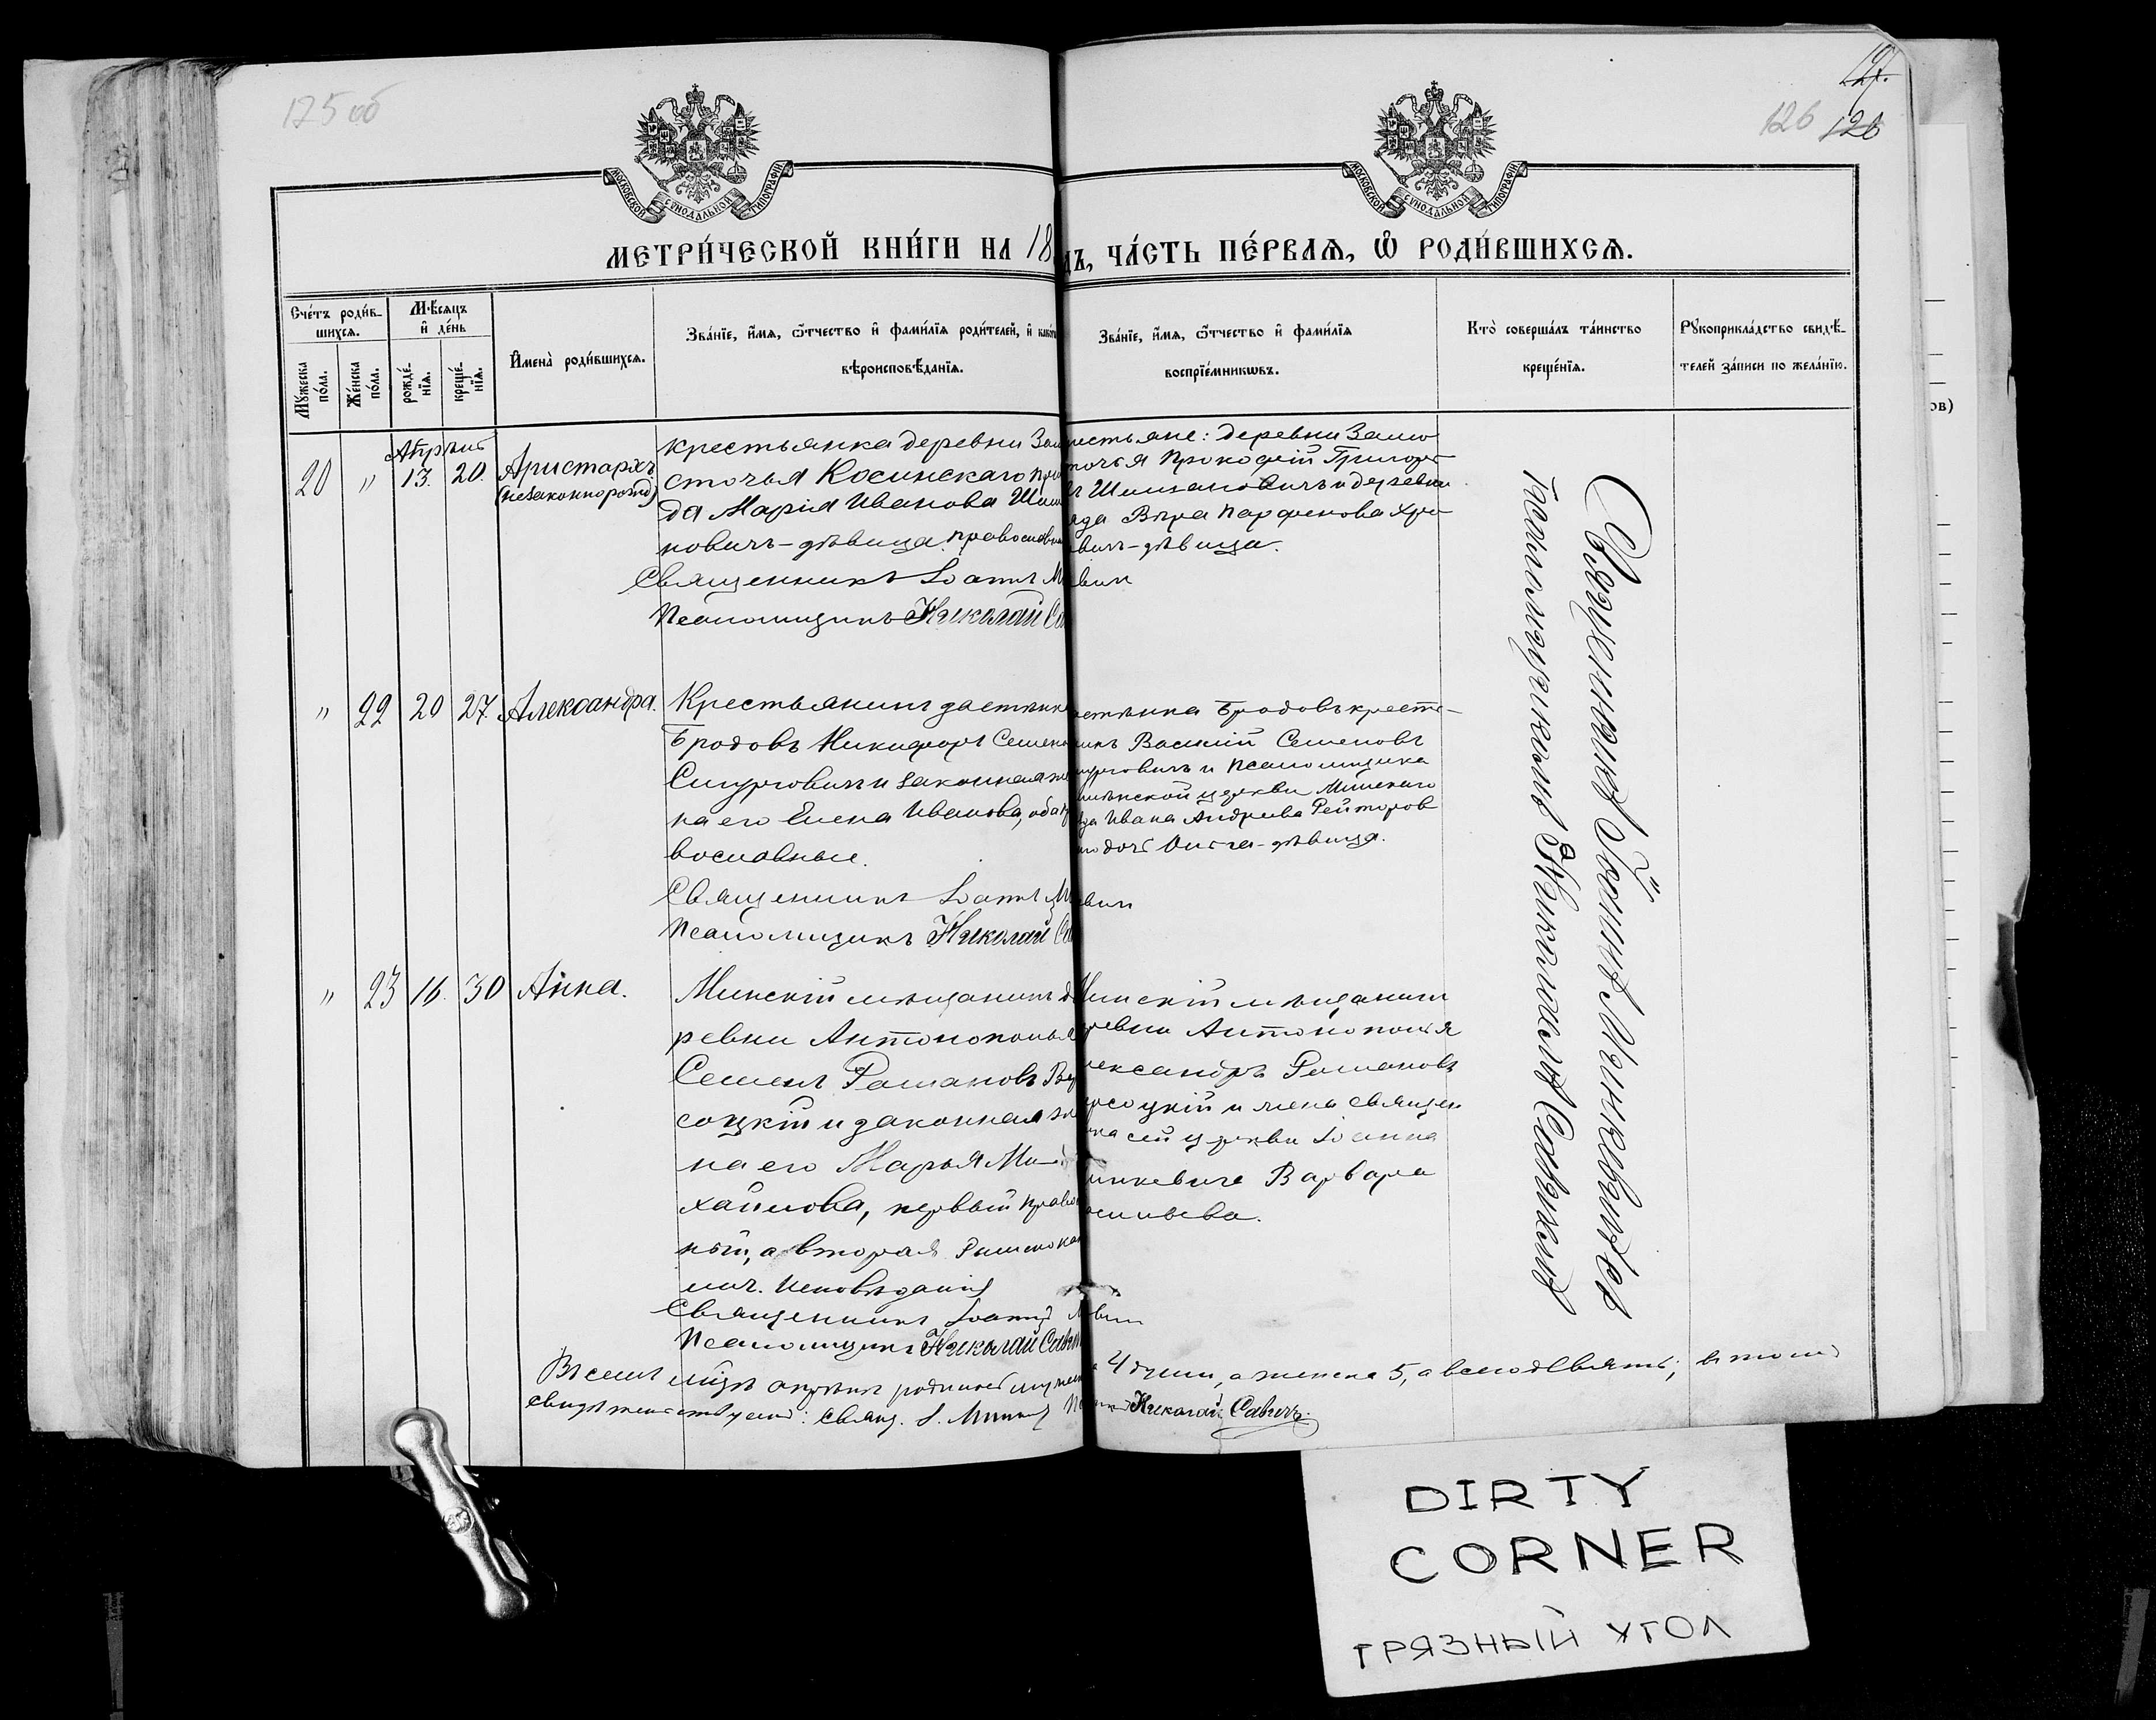 125 об
127.
126 126
МОСКОВСКОЙ СУНОДАЛЬНОЙ ТИПОГРАФІИ
МОСКОВСКОЙ СУНОДАЛЬНОЙ ТИПОГРАФІИ
МЕТРИ́ЧЕСКОЙ КНИ́ГИ НА 18
ДЪ, ЧА́СТЬ ПЕ́РВАЯ, Ѡ РОДИ́ВШИХСЯ.
Сче́тъ роди́в-
шихся.
Мꙋжеска по́ла.
Же́нска по́ла.
Мѣ́сяцъ и де́нь
рожде́-
нїя.
креще́-
нїя.
Имена̀ роди́вшихся.
Зва́нїе, и́мя, ѻ҆́тчество и҆ фами́лїя роди́телей, и҆
вѣроисповѣ́данїя.
Зва́нїе, и́мя, ѻ҆́тчество и҆ фами́лїя
воспрїе́мникѡвъ.
Кто̀ соверша́лъ та́инство
креще́нїя.
Рꙋкоприкла́дство свидѣ́-
телей за́писи по жела́нїю.
Апрѣль
20 " 13. 20. Аристархъ
(незаконнорожд)
крестьянка деревни Зам
сточья Косинскаго
да Марія Иванова Шим
новичъ - дѣвица. православн
Священникъ Іоаннъ М
Псаломщикъ Николай Са
рестьяне: деревни Замо
точья Прокофій Григорь
Шимановичъ и деревни
яда Вѣра Парфенова Хро
вичъ - дѣвица.
вич
" 22 20 27 Александра.
Крестьянинъ застѣнк
Бродовъ Никифоръ Семено
и законная же
на его Елена Иванова, оба пр
вославные.
Священникъ Іоаннъ М
Псаломщикъ Николай Са
стѣнка Бродовъ кресть-
инъ Василій Семеновъ
и Псаломщика
церкви Минскаго
да Ивана Андреева Рейторов
дочь Ольга - дѣвица.
вич
" 23 16. 30 Анна.
Минскій мѣщанинъ д
ревни Антонополья
Семенъ Романовъ Вер
соцкій и законная же
на его Марья Ми-
хайлова, первый право
ный, а вторая Римско ка
лич. исповѣданія
Священникъ Іоаннъ М
Псаломщикъ Николай Савич
Минскій мѣщанинъ
ревни Антонополья
лександръ Романовъ
рсоцкій и жена священ
ика сей церкви Іоанна
инкевича Варвара
асильева.
вич
Священникъ Іоаннъ Минкевичъ
Псаломщикъ Николай Савичъ
Въ семъ м-цѣ апрѣлѣ родилось мужеск 4 души, а женска 5, а всего девять; въ томъ
свидѣтельствуемъ: Свящ. І. Минкев Николай Савичъ.
ов)
DIRTY
CORNER
ГРЯЗНЫЙ УГОЛ